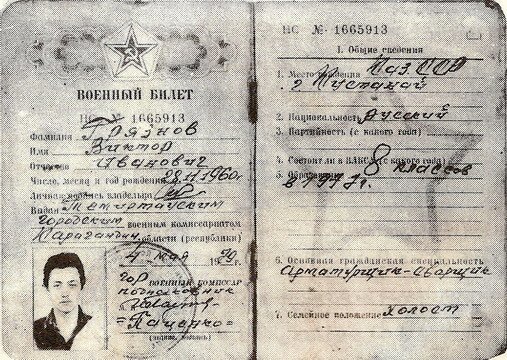 ВОЕННЫЙ БИЛЕТ
НС № 1665913
Фамилия Грязнов
Имя Виктор
Отчество Иванович
Число, месяц и год рождения 28.II 1960г
Личная подпись владельца
Выдан Темиртауским
городским военным комиссариатом
Карагандин. области (республики)
4 мая 1979 г.
Гор военный комиссар
подполковник
=Паченко=
(звание, подпись)
НС № 1665913
I. Общие сведения
1. Место рождения Каз. ССР
г Кустанай
2. Национальность Русский
3. Партийность (с какого года)
4. Состоит ли в ВЛКСМ (с какого года)
5. Образование 8 классов
в 1977 г.
6. Основная гражданская специальность
Арматурщик-сварщик
7. Семейное положение Холост